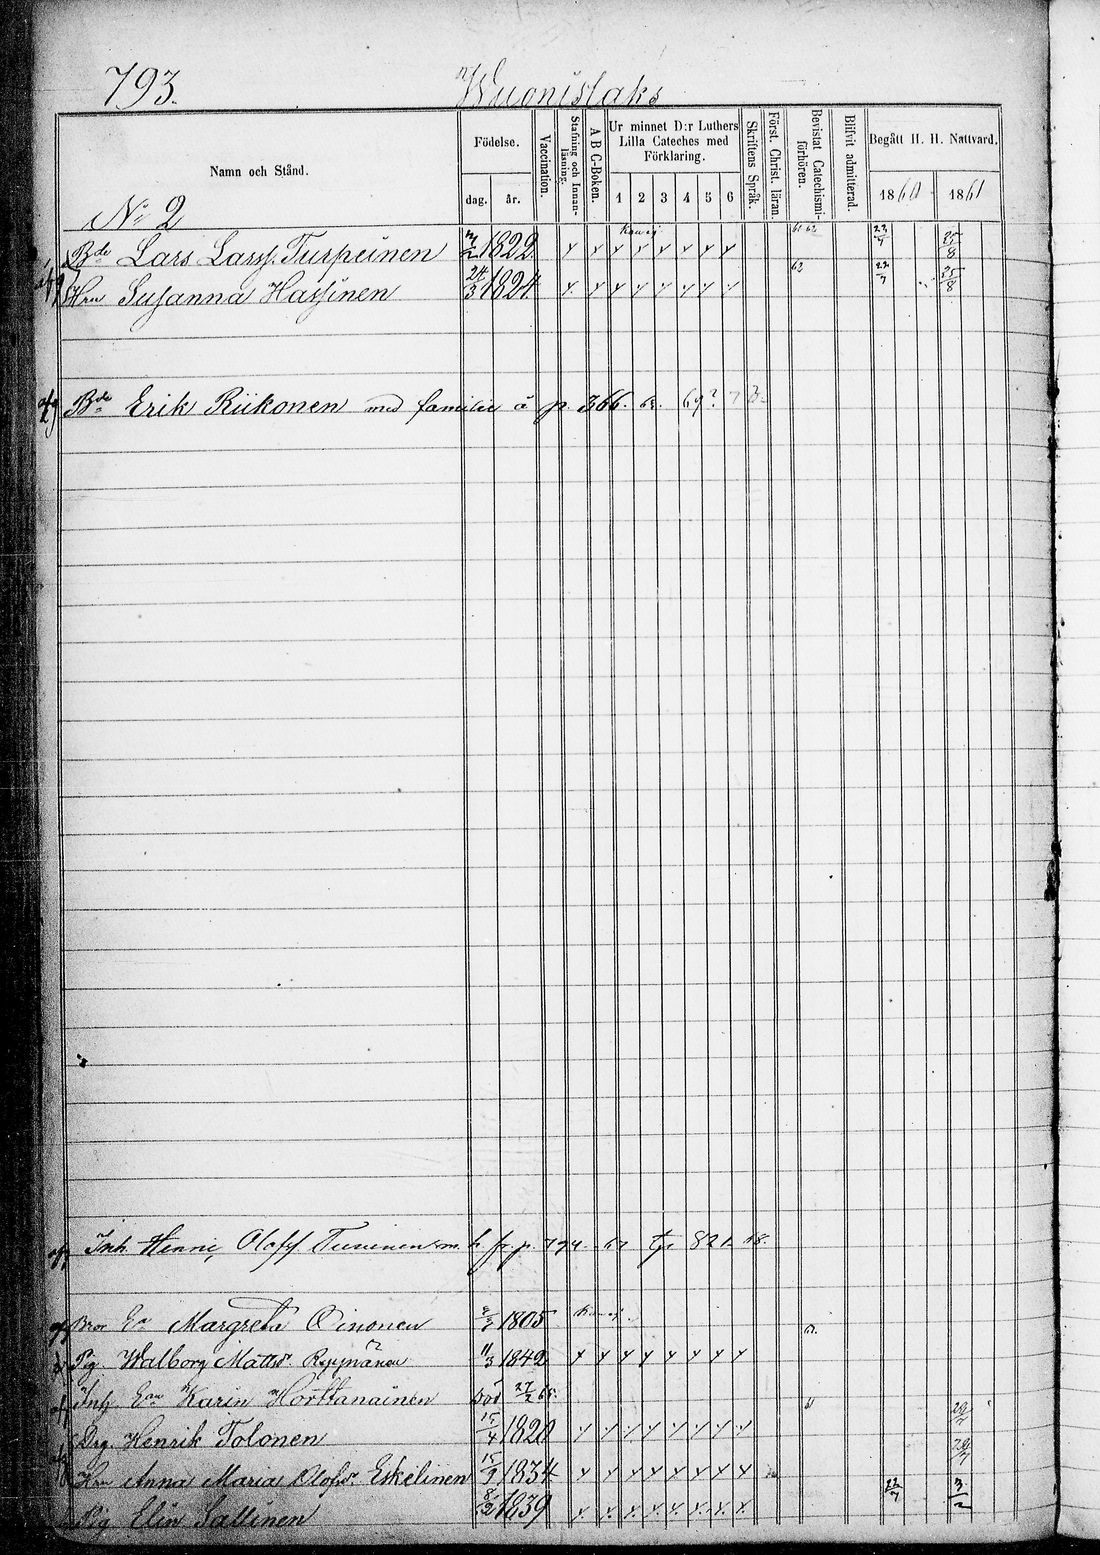 793. Wuonislaks
Namn och Stånd.
Födelse.
dag. år.
Vaccination.
Stafning och Innanläsning.
A B C-Boken.
Ur minnet D:r Luthers Lilla Cateches med Förklaring.
1 2 3 4 5 6
Skriftens Språk.
Först. Christ. läran.
Bevistat Catechismiförhören.
Blifvit admitterad.
Begått H. H. Nattvard.
1860 1861
No 2
Bde Lars Larss. Turpeinen 1822. 61 62 25/8
Hru Susanna Hassinen 24/3 1824 62 25/8
Bde Erik Riikonen med familie å p. 366.
Inh. Henric Olofss. Turunen m. h. fr p. 794. 821
Ea Margreta Oinonen 1805
Pig. Walborg Mattsd. Ryynänen 11/3 1842
Inh. Karin Horttanainen död 27/2 65
Drg. Henrik Tolonen 15/4 1820
Hru Anna Maria Olofsd. Eskelinen 15/9 1834
Pig Elin Sallinen 8/12 1839 3/2